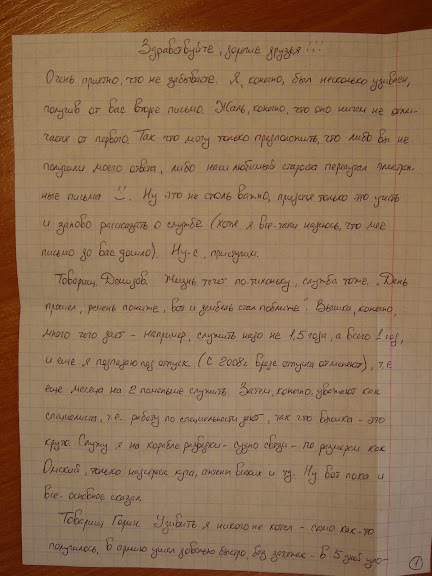 Здравствуйте, дорогие друзья!!!
Очень приятно, что не забываете. Я, конечно, был несколько удивлен,
получив от вас второе письмо. Жаль, конечно, что оно ничем не отли-
чается от первого. Так что могу только предположить, что либо вы не
получили моего ответа, либо наш любимый староста перепутал электрон-
ные письма. Ну это не столь важно, придется только это учесть
и заново рассказать о службе (хотя я все-таки надеюсь, что мое
письмо до вас дошло). Ну-с, приступим.
Товарищ. Жизнь течет по-тихоньку, служба тоже. "День
прошел, ремень пониже, вот и дембель стал поближе". Вышка, конечно,
много чего дает - например, служить надо не 1,5 года, а всего 1 год,
и еще я попадаю под отпуск (с 2008г вроде отпуска отменяют), т.е
еще месяца на 2 поменьше служить. Затем, конечно, уважают как
специалиста, т.е. работу по специальности дают, так что вышка - это
круто. Служу я на корабле разведки - судно связи - по размерам как
Омский, только надстроек куча, антенн всяких и тд. Ну вот пока и
все - основное сказал.
Товарищ Горин. Удивить я никого не хотел - само как-то
получилось, в армию ушел довольно быстро, без заначек - в 5 дней уло-
1